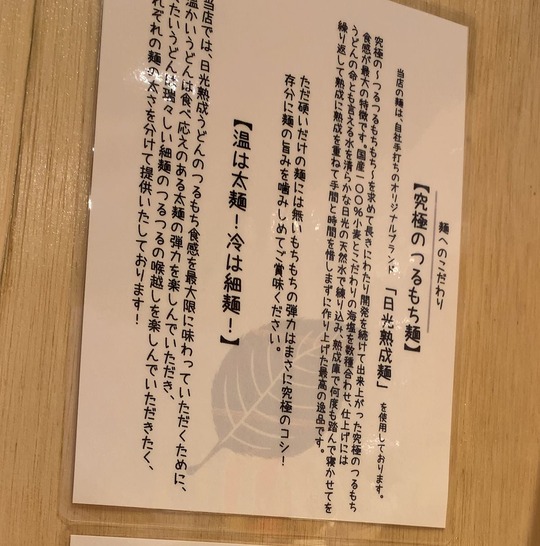 麺へのこだわり
【究極のつるもち麺】
当店の麺は、自社手打ちのオリジナルブランド、「日光熟成麺」を使用しております。
究極の〜つるつるもちもち〜を求めて長きにわたり開発を続けて出来上がった究極のつるもち
食感が最大の特徴です。国産一〇〇％小麦とこだわりの海塩を数種合わせ、仕上げには
うどんの命とも言える水を清らかな日光の天然水で練り込み、熟成庫で何度も踏んで寝かせてを
繰り返して熟成に熟成を重ねて手間と時間を惜しまずに作り上げた最高の逸品です。
ただ硬いだけの麺には無いもちもちの弾力はまさに究極のコシ！
存分に麺の旨みを噛みしめてご賞味ください。
【温は太麺！冷は細麺！】
当店では、日光熟成うどんのつるもち食感を最大限に味わっていただくために、
温かいうどんは食べ応えのある太麺の弾力を楽しんでいただき、
たいうどんは瑞々しい細麺のつるつるの喉越しを楽しんでいただきたく、
れぞれの麺の太さを分けて提供いたしております！